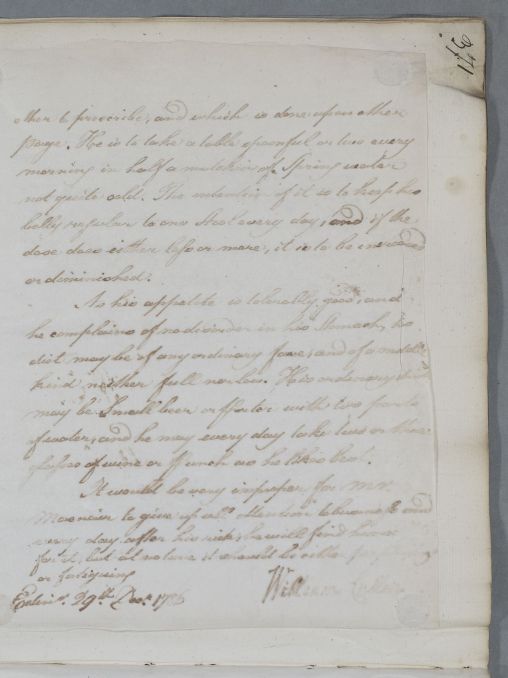 371
other to prescribe, and which is done upon other
page. He is to take a table spoonful or two every
morning in half a mutchkin of Spring water
not quite cold. The intention of it is to keep his
belly regular to one Stool every day, and if the
dose does either less or more, it is to be increased
or diminished.
As his appetite is tolerably good, and
he complains of no disorder in his Stomach, his
diet may be of any ordinary fare, and of a middle
kind neither full nor low. His ordinary drink
may be Small beer or Porter with two parts
of water, and he may every day take two or three
glasses of wine or Punch as he likes best.
It would be very improper for Mr
to give up all attention to business and
every day after his ride he will find
for it, but at no time it should be either
or fatiguing
Edinr. 29th Decr. 1786 William Cullen